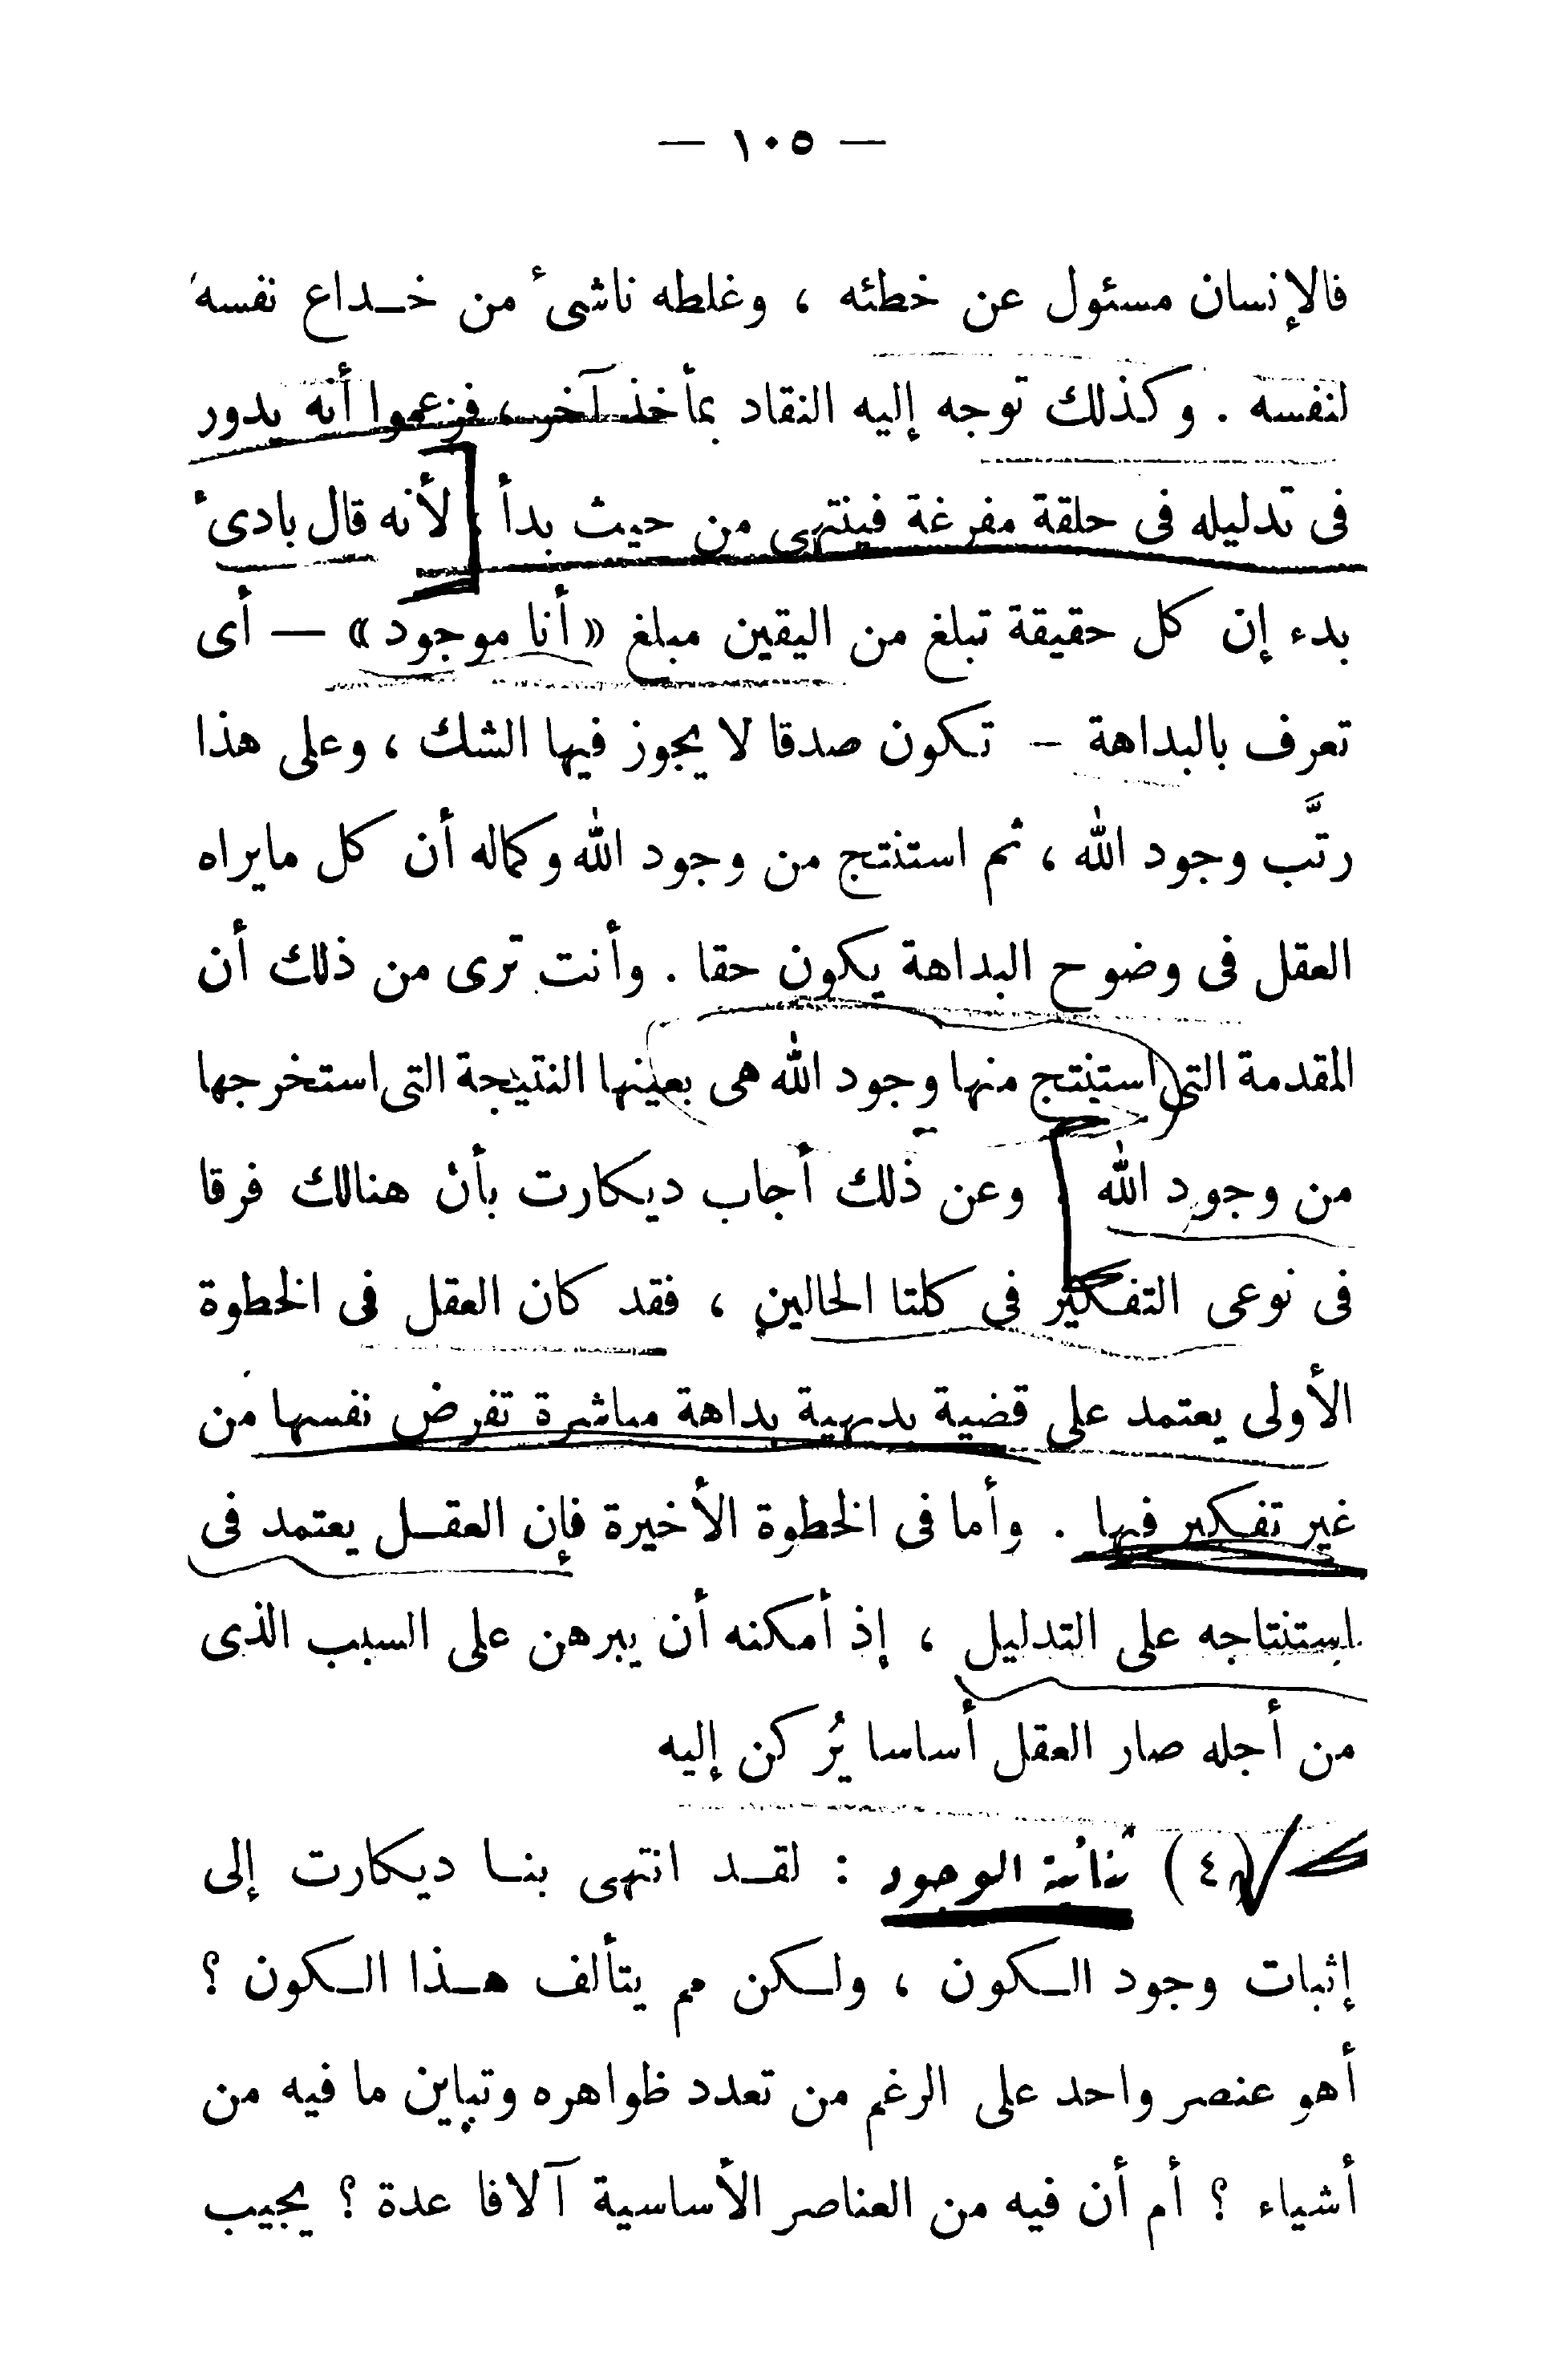 — ١٠٥ —
فالإنسان مسئول عن خطئه ، وغلطه ناشئ من خـداع نفسه
لنفسه . وكذلك توجه إليه النقاد بمأخذ آخر ، فزعموا أنه يدور
فى تدليله فى حلقة مفرغة فينتهى من حيث بدأ ؛ لأنه قال بادئ
بدء إن كل حقيقة تبلغ من اليقين مبلغ « أنا موجود » — أى
تعرف بالبداهة — تكون صدقا لا يجوز فيها الشك ، وعلى هذا
رتَّب وجود الله ، ثم استنتج من وجود الله وكماله أن كل مايراه
العقل فى وضوح البداهة يكون حقا . وأنت ترى من ذلك أن
المقدمة التى استنتج منها وجود الله هى بعينها النتيجة التى استخرجها
من وجود الله . وعن ذلك أجاب ديكارت بأن هنالك فرقا
فى نوعى التفكير فى كلتا الحالين ، فقد كان العقل فى الخطوة
الأولى يعتمد على قضية بديهية بداهة مباشرة تفرض نفسها من
غير تفكير فيها . وأما فى الخطوة الأخيرة فإن العقـل يعتمد فى
استنتاجه على التدليل ، إذ أمكنه أن يبرهن على السبب الذى
من أجله صار العقل أساسا يُركن إليه
(٤) ثنائية الوجود : لقـد انتهى بنـا ديكارت إلى
إثبات وجود الـكون ، ولـكن مم يتألف هـذا الـكون ؟
أهو عنصر واحد على الرغم من تعدد ظواهره وتباين ما فيه من
أشياء ؟ أم أن فيه من العناصر الأساسية آلافا عدة ؟ يجيب